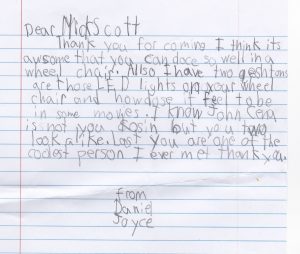 Dear, Nick Scott
Thank you for coming I think its
awsome that you can doce so well in a
wheel chair. Allso I have two qeshtons
are those LED lights on your wheel
chair and how dose it feel to be
in some movies. I know John Cena
is not you cosin but you two
look a like. Last you are one of the
coolest person I ever met thank you.
from
Daniel
Joyce